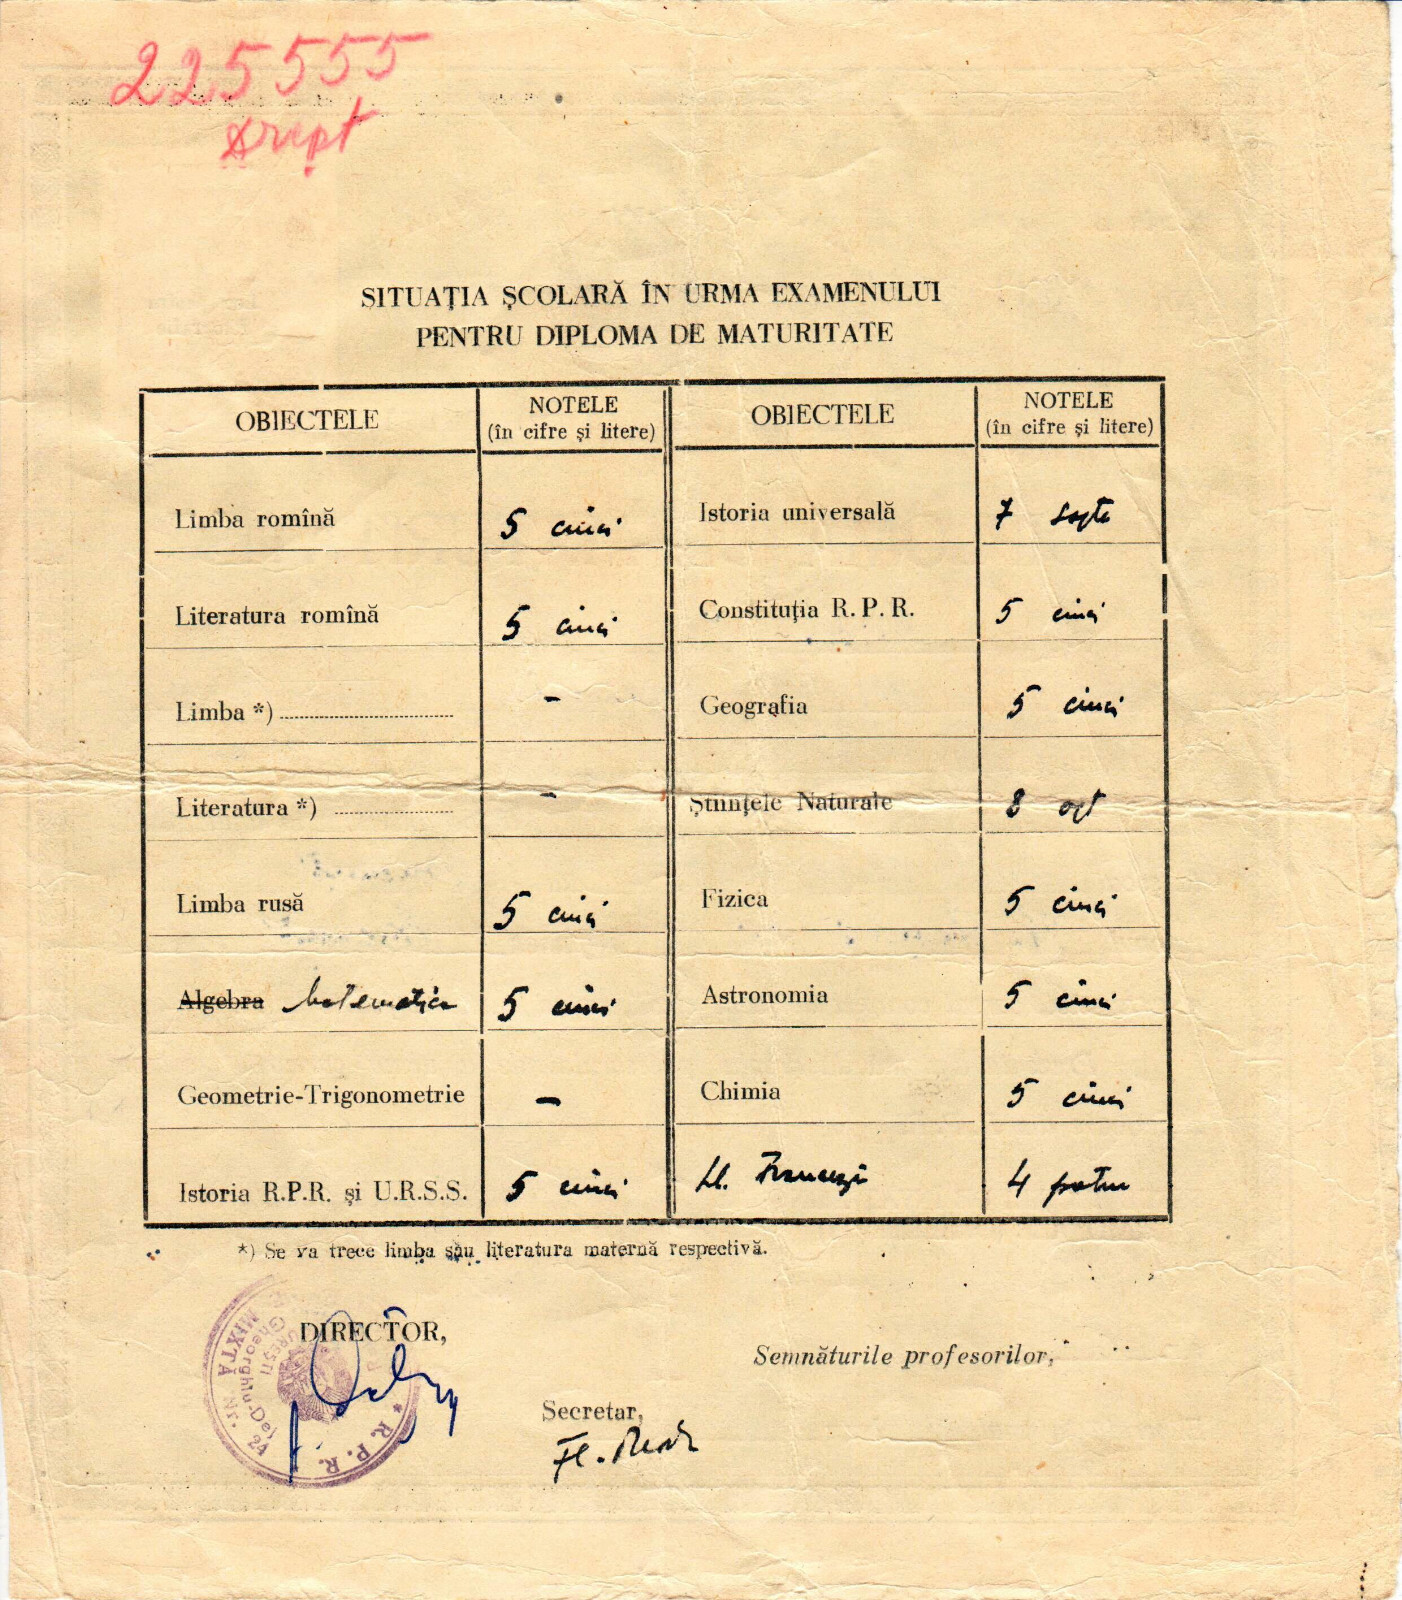 225555
Drept
SITUAŢIA ŞCOLARĂ ÎN URMA EXAMENULUI
PENTRU DIPLOMA DE MATURITATE
OBIECTELE NOTELE (în cifre şi litere) OBIECTELE NOTELE (în cifre şi litere)
Limba romînă 5 cinci Istoria universală 7 șapte
Literatura romînă 5 cinci Constituţia R.P.R. 5 cinci
Limba *) - Geografia 5 cinci
Literatura *) - Ştiinţele Naturale 8 opt
Limba rusă 5 cinci Fizica 5 cinci
Algebra Matematica 5 cinci Astronomia 5 cinci
Geometrie-Trigonometrie - Chimia 5 cinci
Istoria R.P.R. şi U.R.S.S. 5 cinci Franceză 4 patru
*) Se va trece limba sau literatura maternă respectivă.
DIRECTOR,
Semnăturile profesorilor,
Secretar,
MIXTĂ Nr. 24
Gheorghiu-Dej
* R.P.R.